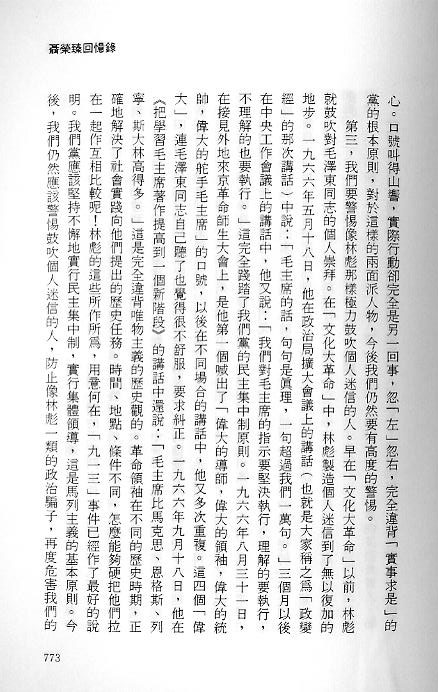 聶榮臻回憶錄
心。口號叫得山響，實際行動卻完全是另一回事，忽「左」忽右，完全違背「實事求是」的
黨的根本原則，對於這樣的兩面派人物，今後我們仍然要有高度的警惕。
第三，我們要警惕像林彪那樣極力鼓吹個人迷信的人。早在「文化大革命」以前，林彪
就鼓吹對毛澤東同志的個人崇拜。在「文化大革命」中，林彪製造個人迷信到了無以復加的
地步。一九六六年五月十八日，他在政治局擴大會議上的講話（也就是大家稱之爲「政變
經」的那次講話）中說：「毛主席的話，句句是眞理，一句超過我們一萬句。」三個月以後
在中央工作會議上的講話中，他又說：「我們對毛主席的指示要堅決執行，理解的要執行，
不理解的也要執行。」這完全踐踏了我們黨的民主集中制原則。一九六六年八月三十一日，
在接見外地來京革命師生大會上，是他第一個喊出了「偉大的導師，偉大的領袖，偉大的統
帥，偉大的舵手毛主席」的口號，以後在不同場合的講話中，他又多次重複。這四個「偉
大」，連毛澤東同志自己聽了也覺得很不舒服，要求糾正。一九六六年九月十八日，他在
《把學習毛主席著作提高到一個新階段》的講話中還說：「毛主席比馬克思、恩格斯、列
寧、斯大林高得多。」這是完全違背唯物主義的歷史觀的。革命領袖在不同的歷史時期，正
確地解決了社會實踐向他們提出的歷史任務。時間、地點、條件不同，怎麼能夠硬把他們拉
在一起作互相比較呢！林彪的這些所作所爲，用意何在，「九一三」事件已經作了最好的說
明。我們黨應該堅持不懈地實行民主集中制，實行集體領導，這是馬列主義的基本原則。今
後，我們仍然應該警惕鼓吹個人迷信的人，防止像林彪一類的政治騙子，再度危害我們的
773